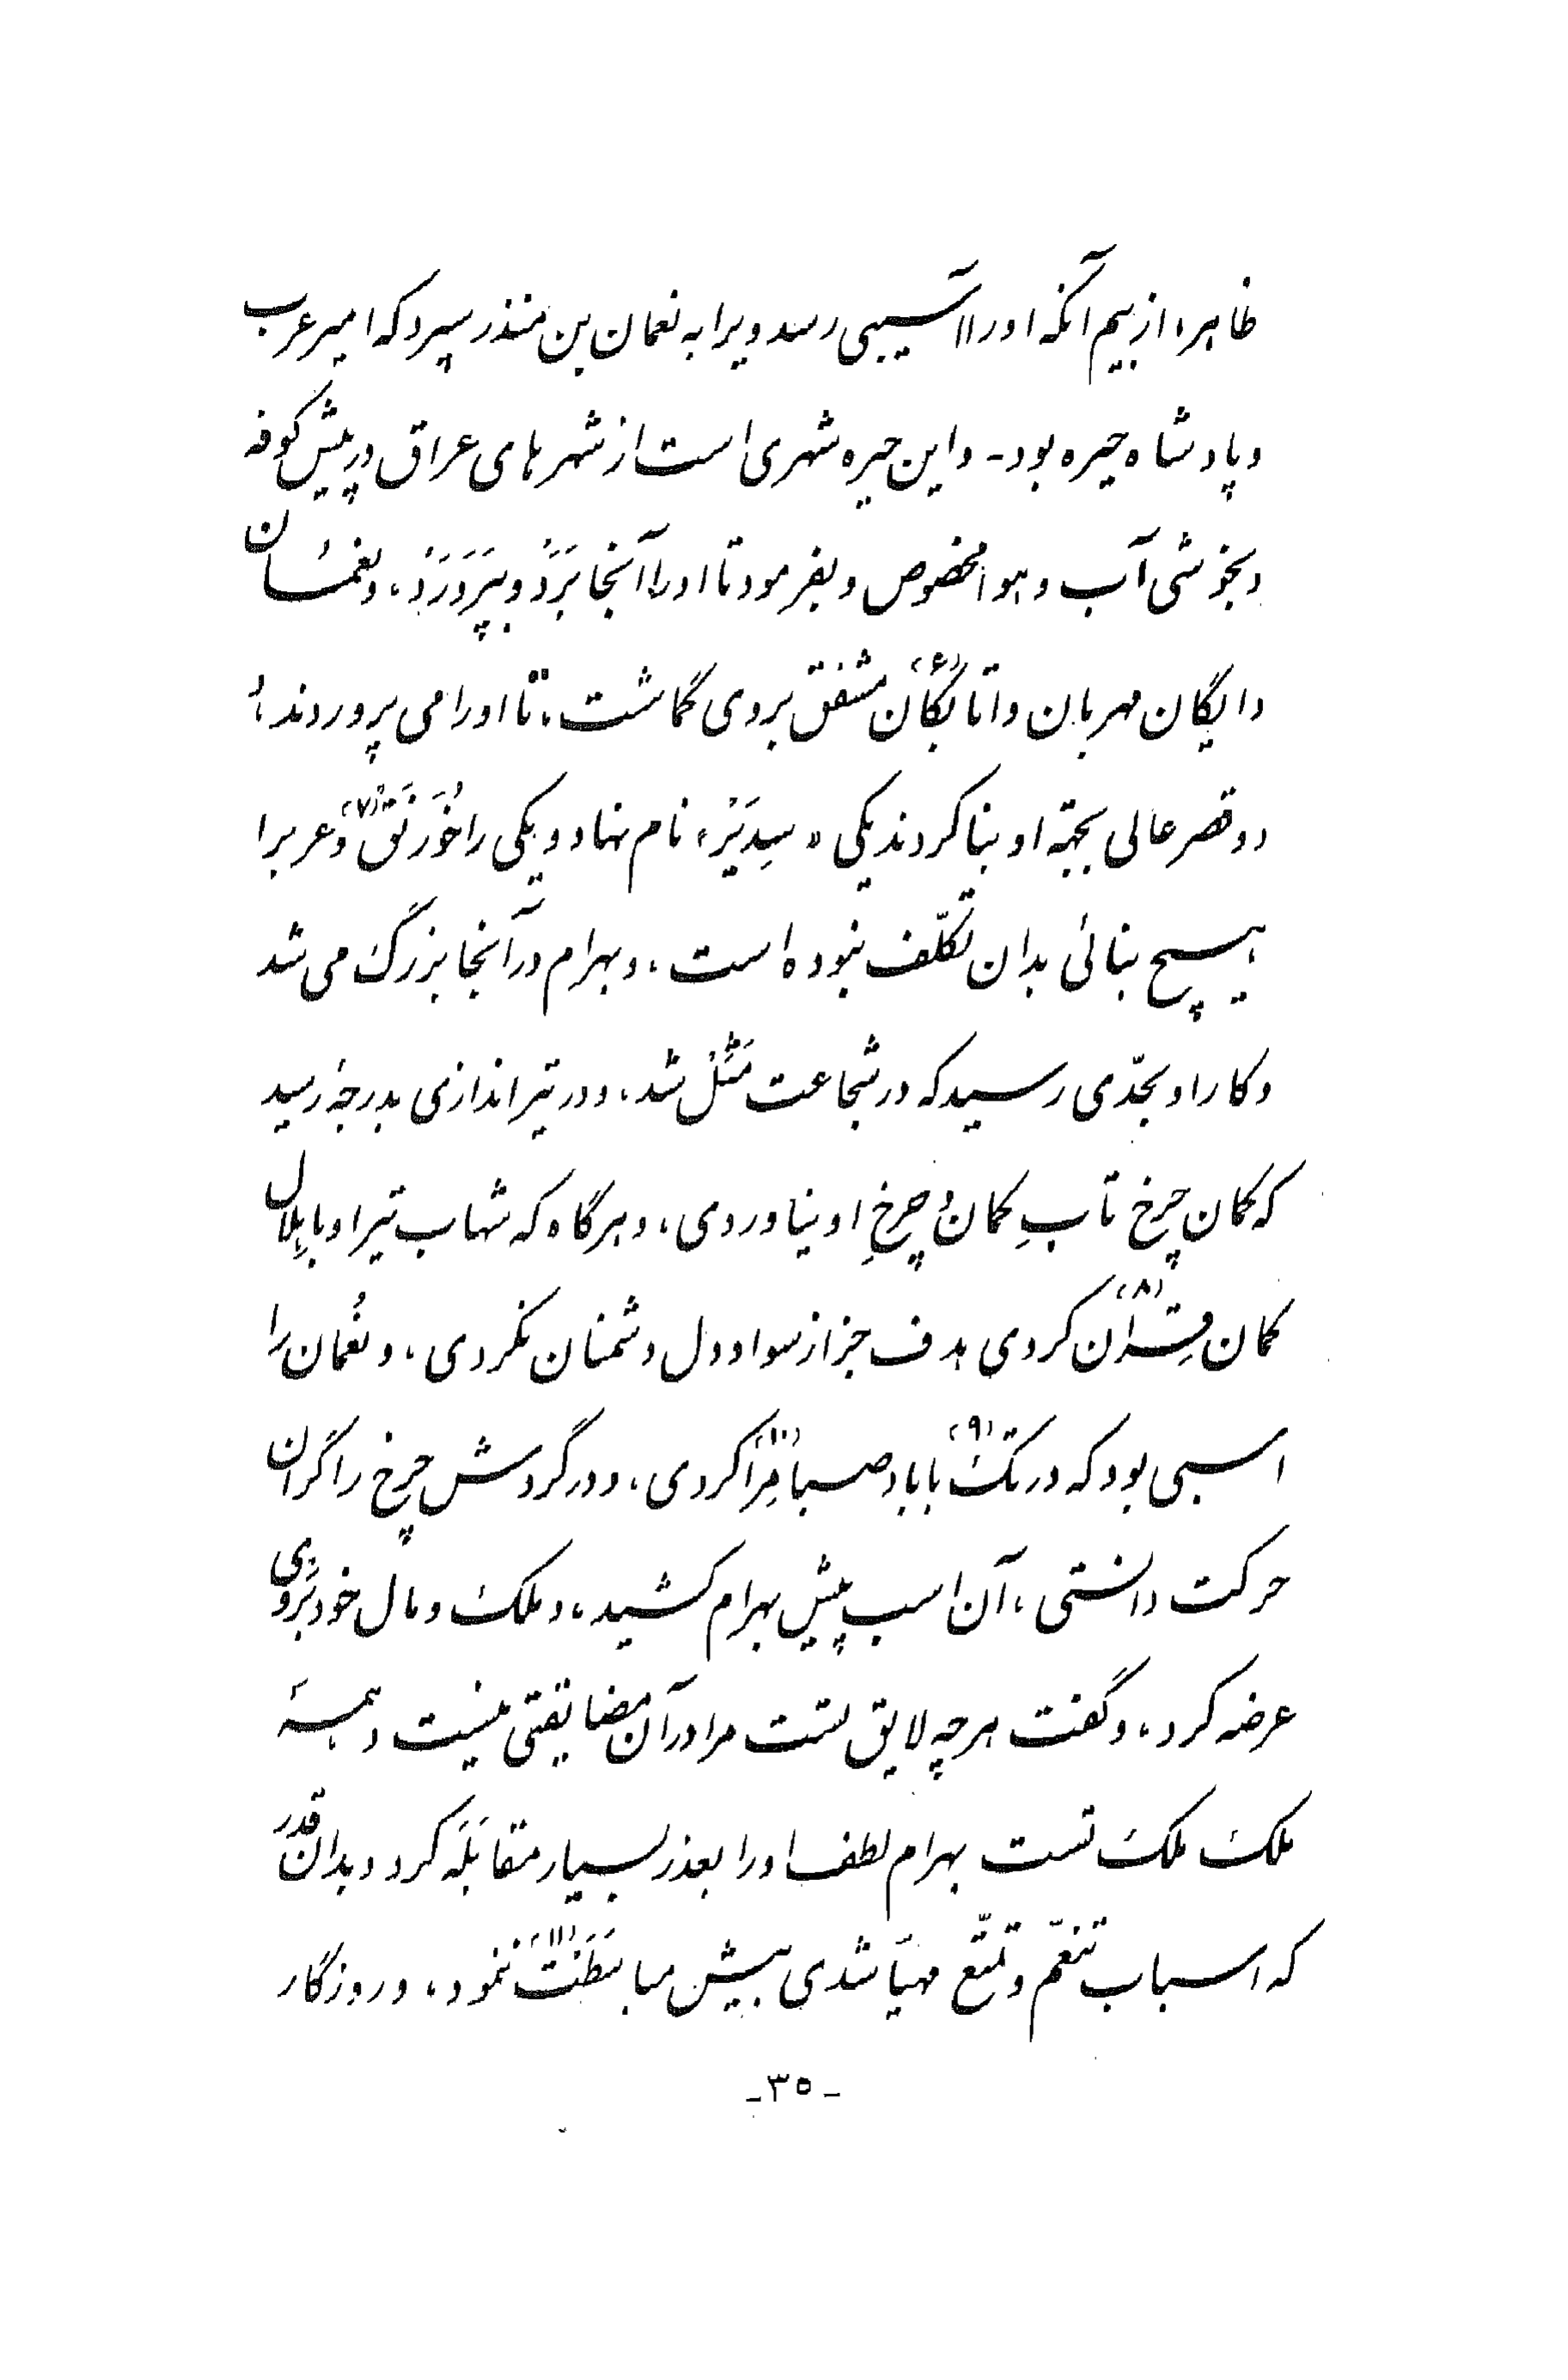 ظاهر، از بیم آنکه اورا آسیبی رسد ویرا به نعمان بن منذر سپرد که امیر عرب
و پادشاه حیره بود - و این حیره شهری است از شهرهای عراق در پیش کوفه
و بخوشی آب و هوا مخصوص و بفرمود تا او را آنجا بَرَدْ و بپَروَرَدْ، و نعمان
دایگان مهربان و اتابکان (۶) مشفق بروی گماشت، تا اورا می پروردند،
دو قصر عالی بجهته او بنا کردند یکی «سِدیَرْ» نام نهاد و یکی را خُوَرنَقْ (۷) و عرب را
هیچ بنائی بدان تکلّف نبوده است، و بهرام در آنجا بزرگ می شد
و کار او بحدّی رسید که در شجاعت مَثَلْ شد، و در تیراندازی بدرجهٔ رسید
که کمان چرخ تابِ کمان و چرخِ او نیاوردی، و هرگاه که شهاب تیر او با هِلال
کمان قِران (۸) کردی هدف جز از سواد دل دشمنان نکردی، و نُعمان را
اسبی بود که در تک (۹) با باد صبا مِرا (۱۰) کردی، و در گردش چرخ را گران
حرکت دانستی، آن اسب پیش بهرام کشید، و ملک و مال خود بَروی
عرضه کرد، و گفت هرچه لایق تست مرا در آن مضایقتی نیست و همهٔ
ملک ملک تست بهرام لطف او را بعذر بسیار مقابَلَه کرد و بدان قدر
که اسباب تنعّم و تمتّع مهیّا شدی بیش مباسَطَتْ (۱۱) ننمود، و روزگار
- ۳۵ -